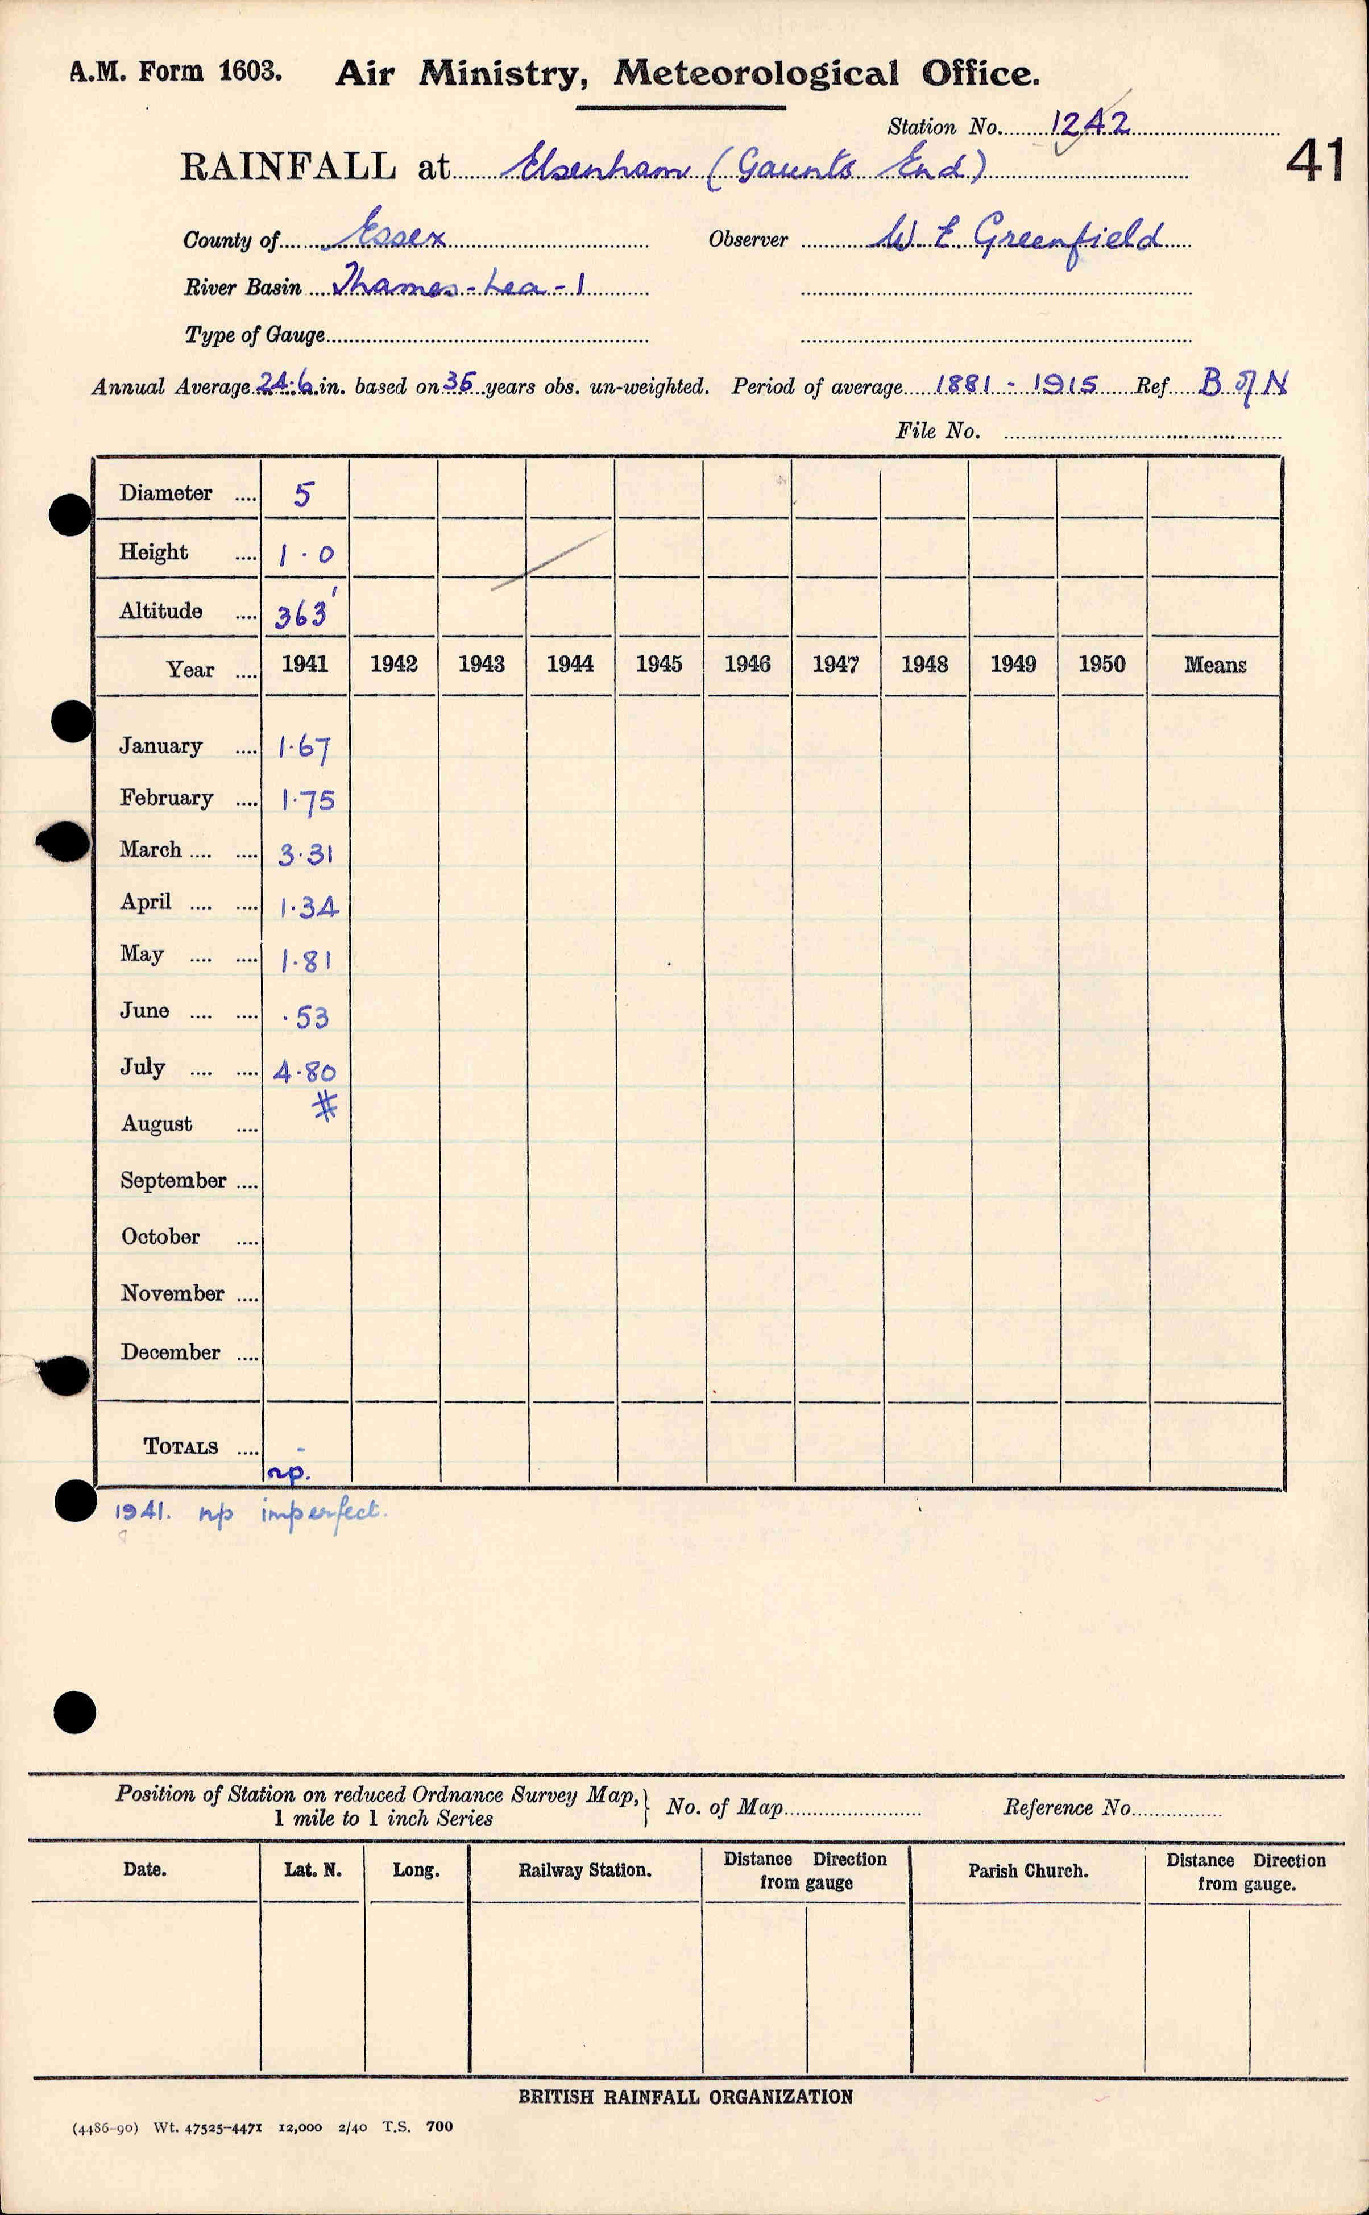 A.M. Form 1603. Air Ministry, Meteorological Office.
Station No. 1242
41
RAINFALL at Elsenham (Gaunts End)
County of Essex Observer W E Greenfield
River Basin Thames - Lea - 1
Type of Gauge
Annual Average 24.6 in. based on 35 years obs. un-weighted. Period of average 1881 - 1915 Ref. B of N
File No.
Diameter .... 5
Height .... 1.0
Altitude .... 363'
Year .... 1941 1942 1943 1944 1945 1946 1947 1948 1949 1950 Means
January .... 1.67
February .... 1.75
March .... .... 3.31
April .... .... 1.34
May .... .... 1.81
June .... .... .53
July .... .... 4.80
#
August ....
September ....
October ....
November ....
December ....
TOTALS .... -
np.
1941. np imperfect.
Position of Station on reduced Ordnance Survey Map,} No. of Map Reference No.
1 mile to 1 inch Series
Date. Lat. N. Long. Railway Station. Distance Direction from gauge Parish Church. Distance Direction from gauge.
BRITISH RAINFALL ORGANIZATION
(4486-90) Wt. 47525-4471 12,000 2/40 T.S. 700